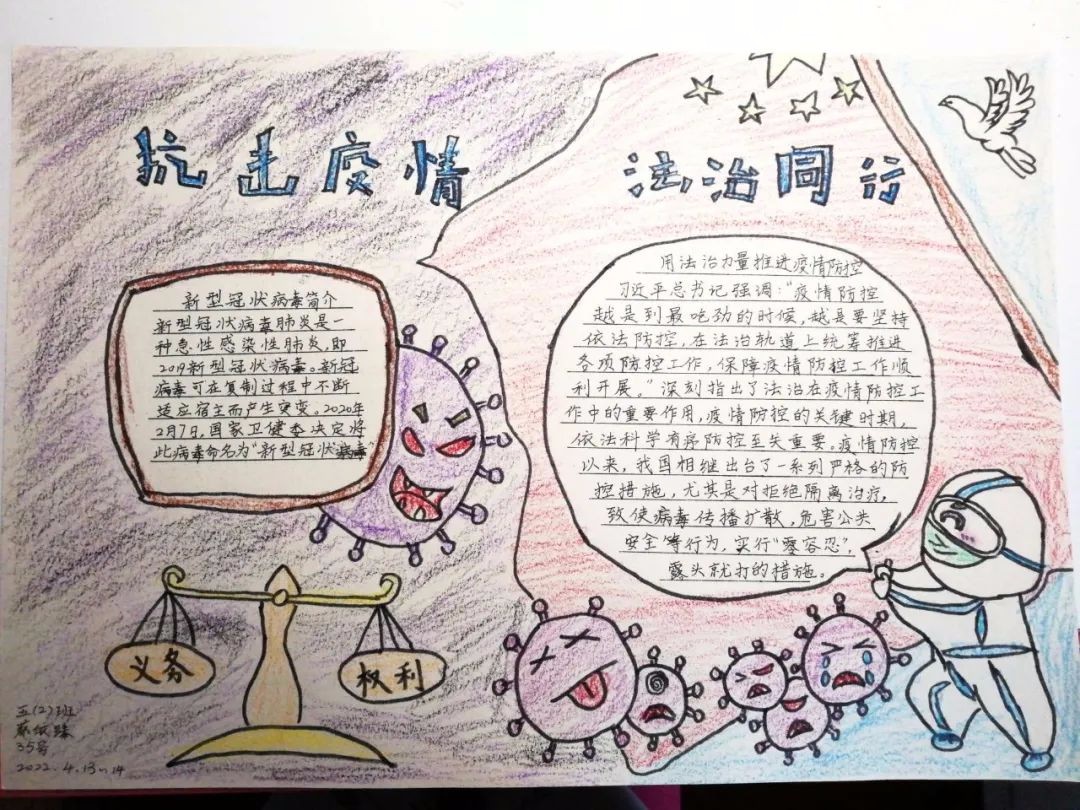 抗击疫情 法治同行
新型冠状病毒简介
新型冠状病毒肺炎是一
种急性感染性肺炎,即
2019新型冠状病毒。新冠
病毒可在复制过程中不断
适应宿主而产生突变。2020年
2月7日,国家卫健委决定将
此病毒命名为"新型冠状病毒"
用法治力量推进疫情防控
习近平总书记强调:"疫情防控
越是到最吃劲的时候,越是要坚持
依法防控,在法治轨道上统筹推进
各项防控工作,保障疫情防控工作顺
利开展。"深刻指出了法治在疫情防控工
作中的重要作用,疫情防控的关键时期,
依法科学有序防控至关重要。疫情防控
以来,我国相继出台了一系列严格的防
控措施,尤其是对拒绝隔离治疗,
致使病毒传播扩散,危害公共
安全等行为,实行"零容忍",
露头就打的措施。
义务
权利
五(2)班
35号
2022.4.13~14